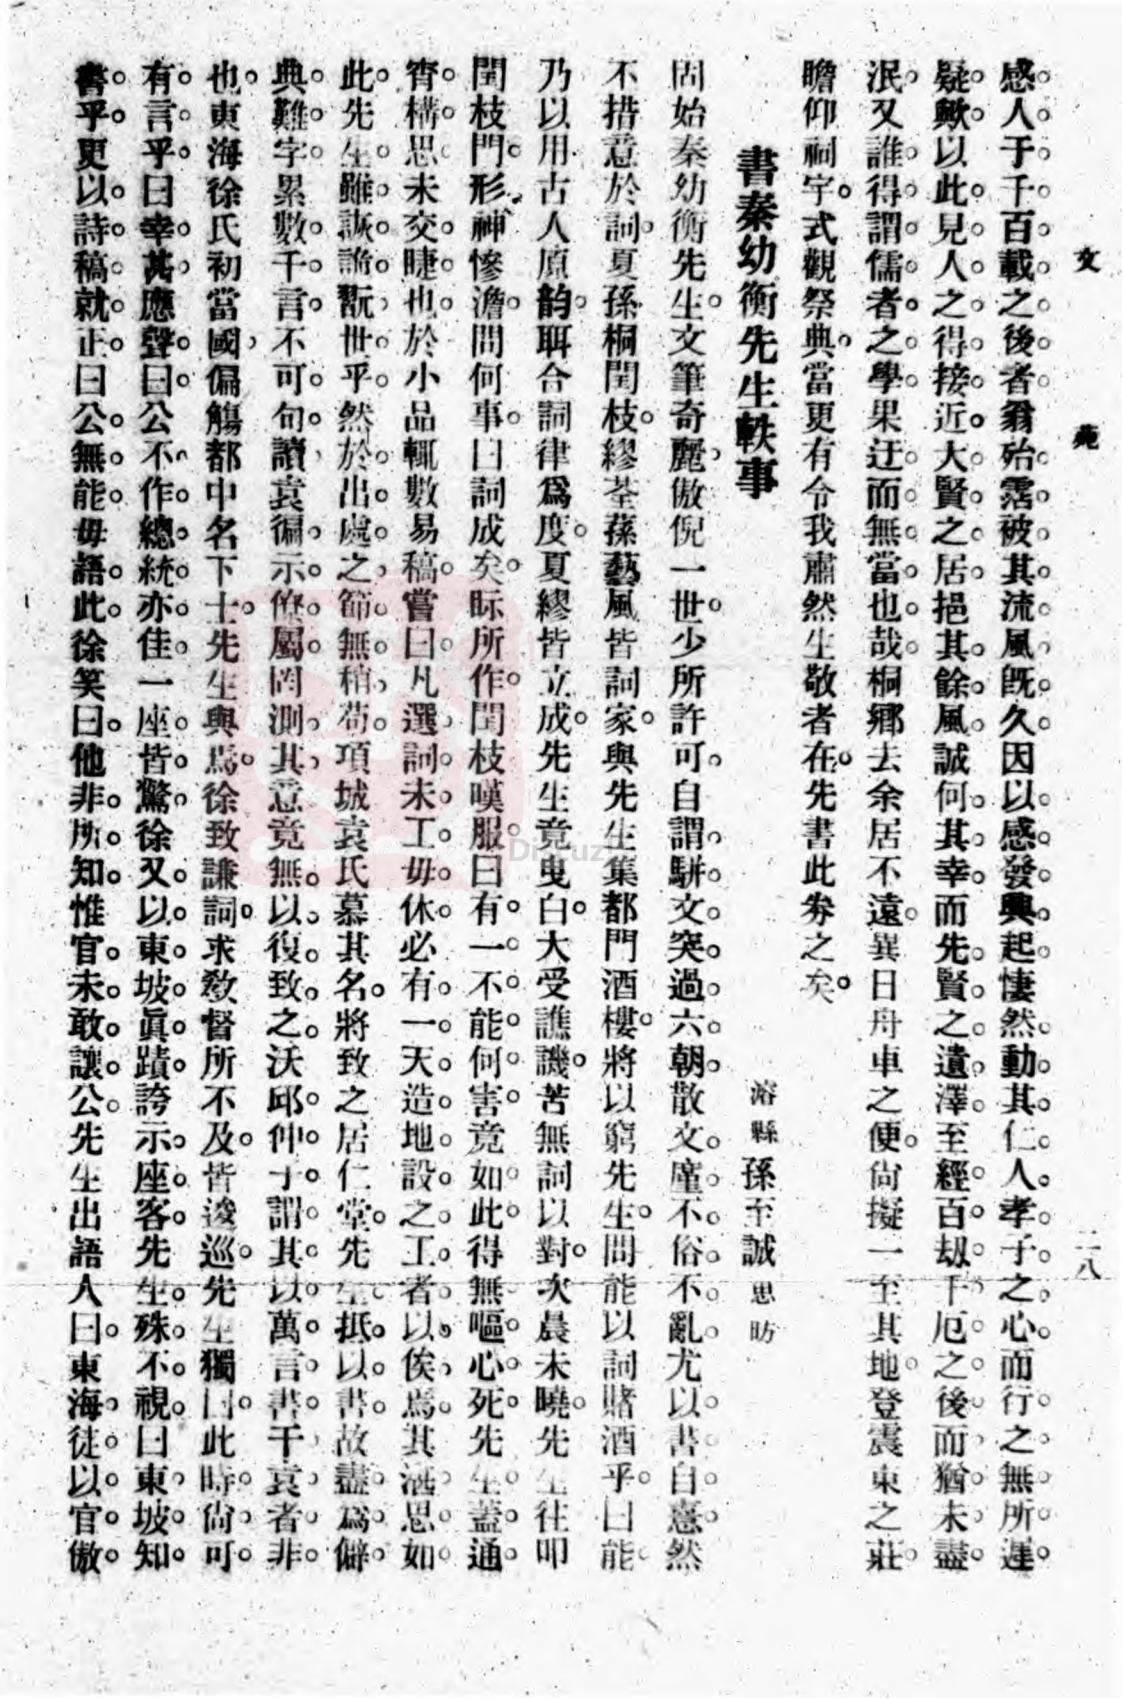 文 苑 二八
感人于千百載之後者翁殆霑被其流風旣久因以感發興起悽然動其仁人孝子之心而行之無所遲。
疑歟。以此見人之得接近大賢之居挹其餘風誠何其幸而先賢之遺澤至經百刼千厄之後而猶未盡
泯又誰得謂儒者之學果迂而無當也哉。桐鄉去余居不遠。異日舟車之便尙擬一至其地登震東之莊。
瞻仰祠宇。式觀祭典。當更有令我肅然生敬者在。先書此券之矣。
書秦幼衡先生軼事 濬縣孫至誠思昉
固始秦幼衡先生。文筆奇麗。傲倪一世。少所許可。自謂駢文突過六朝。散文廑不俗不亂。尤以書自憙。然
不措意於詞。夏孫桐閏枝。繆荃蓀藝風皆詞家。與先生集都門酒樓。將以窮先生。問能以詞賭酒乎。曰能。
乃以用古人原韵。聑合詞律爲度。夏繆皆立成。先生竟曳白。大受譙譏。苦無詞以對。次晨未曉。先生往叩
閏枝門。形神慘澹。問何事。曰詞成矣。眎所作。閏枝嘆服曰。有一不能何害。竟如此。得無嘔心死。先生蓋通
宵構思。未交睫也。於小品輒數易稿。嘗曰。凡選詞未工毋休。必有一天造地設之工者以俟焉。其湛思如
此。先生雖詼詭翫世乎。然於出處之節。無稍苟。項城袁氏慕其名。將致之居仁堂。先生抵以書。故盡爲僻
典難字。累數千言。不可句讀。袁徧示僚屬。罔測其意。竟無以復致之。沃邱仲子謂其以萬言書干袁者非
也。東海徐氏初當國。偏觴都中名下士。先生與焉。徐致謙詞。求敎督所不及。皆逡巡。先生獨曰。此時尙可
有言乎。曰幸甚。應聲曰。公不作總統亦佳。一座皆驚。徐又以東坡眞蹟誇示座客。先生殊不視。曰東坡知
書乎。更以詩稿就正。曰公無能毋語此。徐笑曰。他非所知。惟官未敢讓公。先生出語人曰。東海徒以官傲